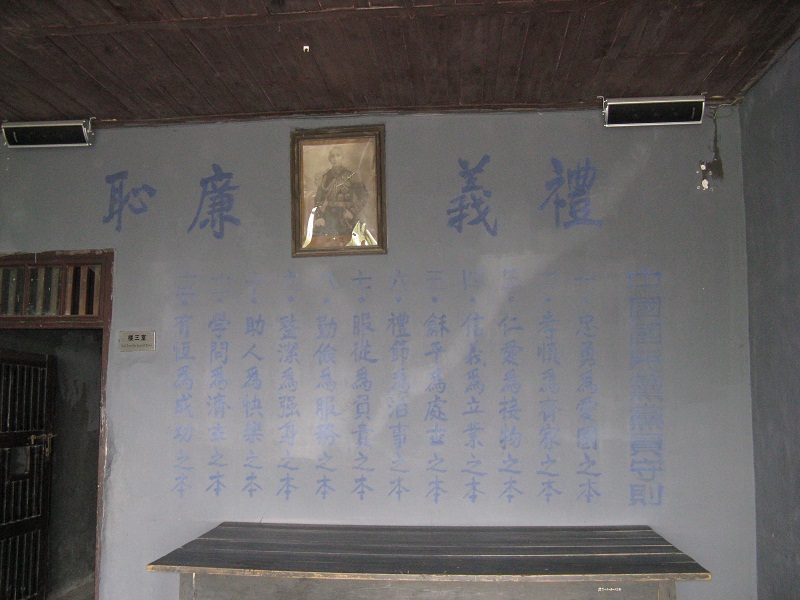 禮義廉恥
中國國民黨黨員守則
一、忠勇為愛國之本
二、孝順為齊家之本
三、仁愛為接物之本
四、信義為立業之本
五、龢平為處世之本
六、禮節為治事之本
七、服從為負責之本
八、勤儉為服務之本
九、整潔為強身之本
十、助人為快樂之本
十一、學問為濟世之本
十二、有恆為成功之本